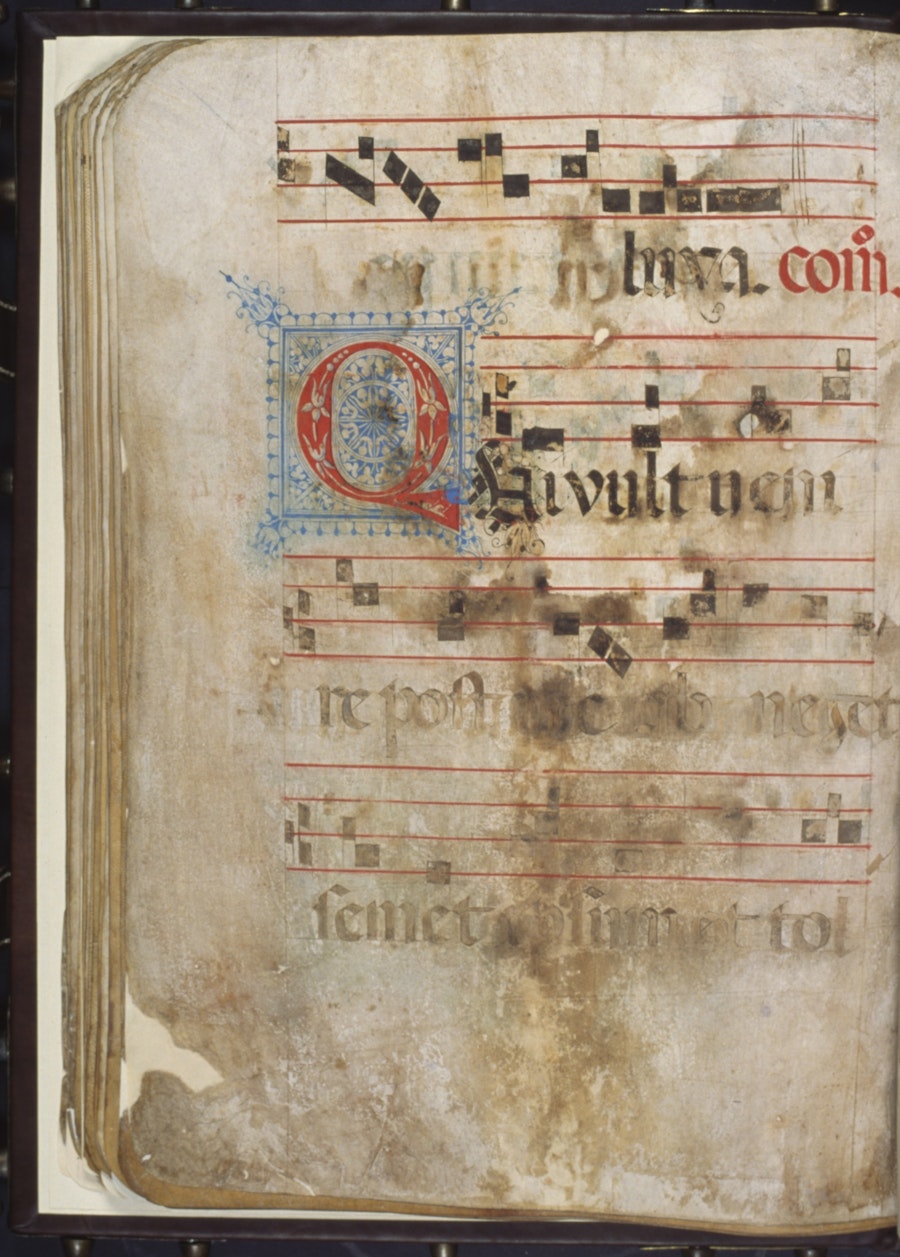 luya. com̃.
Qui vult veni
re post me ab neget
semet ipsum et tol